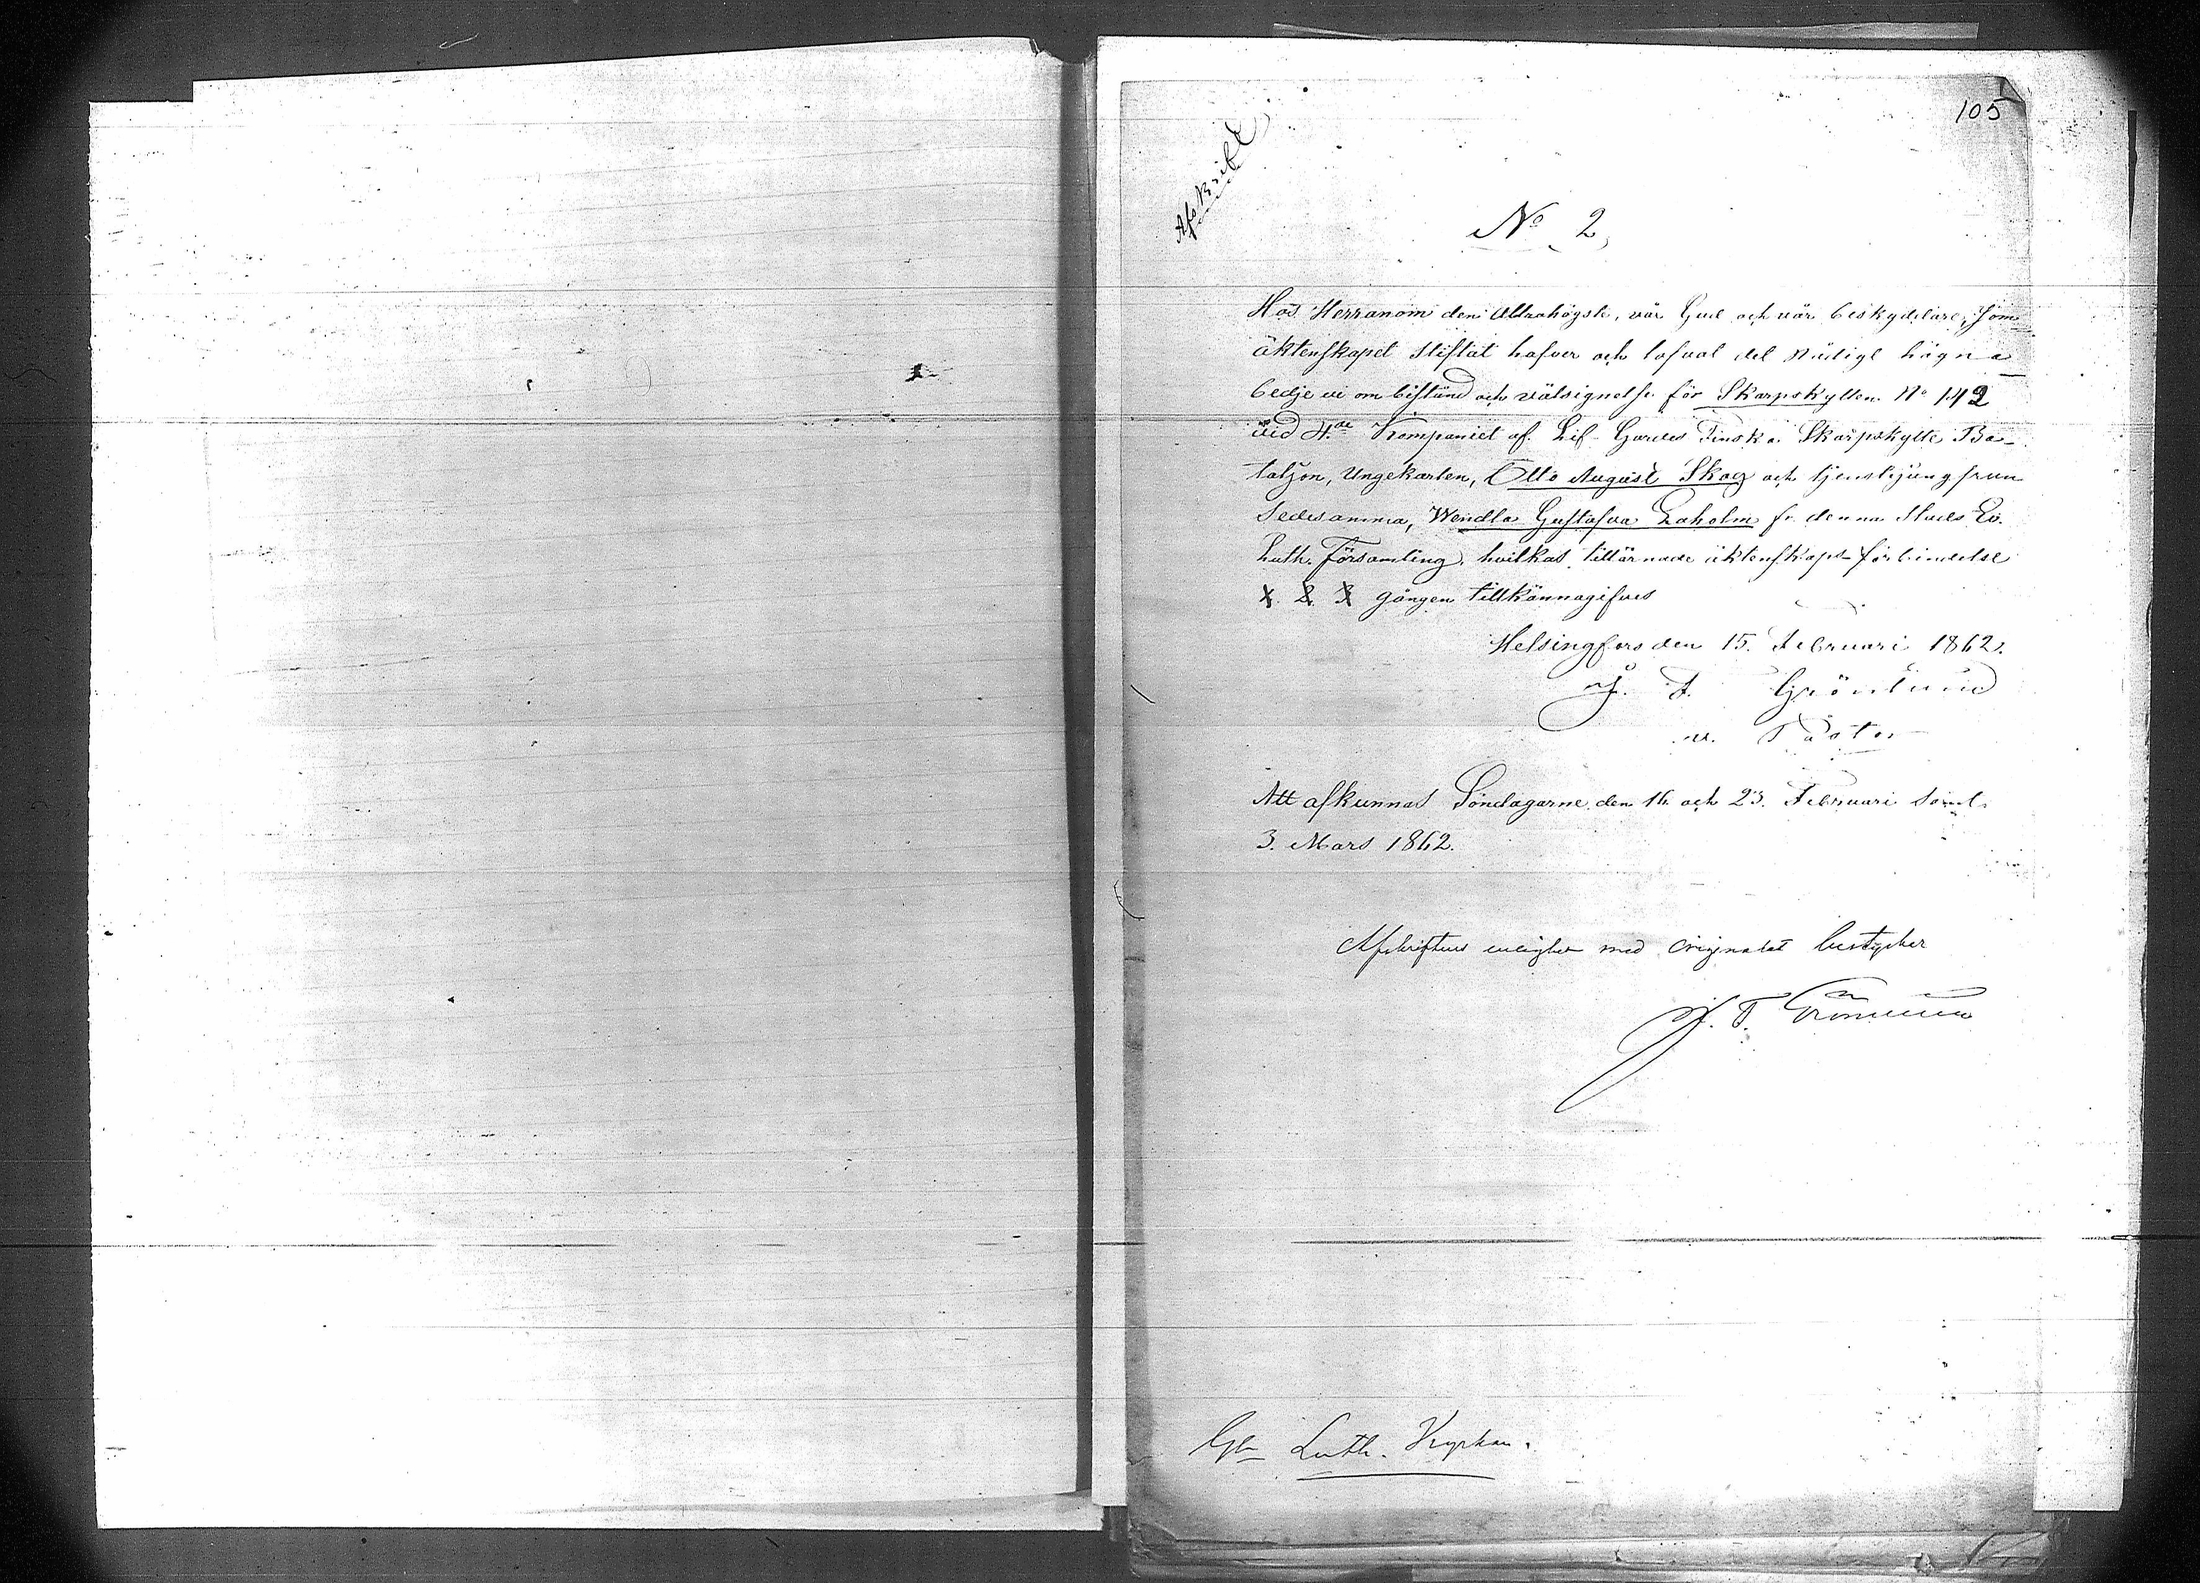 105
Afskrift
No 2,
Hos Herranom den Allrahögste, vår Gud och vår beskyddare, som
äktenskapet stiftat hafver och lofvat det nådigt hägna
bedje vi om bistånd och välsignelse för Skarpskytten No 142
vid 4de Kompaniet af Lif-Gardes Finska Skarpskytte Ba-
taljon, Ungekarlen, Otto August Skog och tjenstejungfrun
Sedesamma, Wendla Gustafva Laholm fr. denna Stads Ev.
Luth. Församling, hvilkas tillärnade äktenskaps-förbindelse
1. 2. 3 gången tillkännagifves
Helsingfors den 15. Februari 1862.
J. F. Grönlund
v. Pastor
Att afkunnas Söndagarne den 16 och 23. Februari samt
3. Mars 1862.
Afskriftens enlighet med originalet bestyrker
J. F. Grönlund
Luth. Kyrkan.